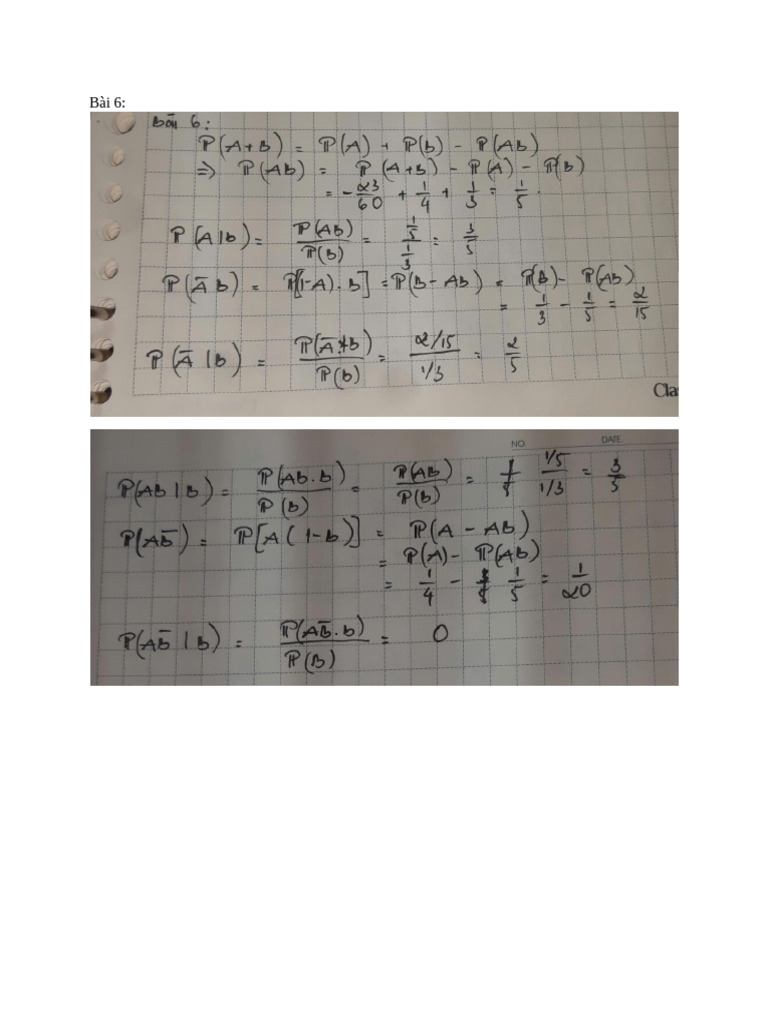 Bài 6:
Bài 6:
P(A+B) = P(A) + P(B) - P(AB)
=> P(AB) = P(A+B) - P(A) - P(B)
= -23/60 + 1/4 + 1/3 = 1/5.
P(A|B) = P(AB)/P(B) = (1/5)/(1/3) = 3/5
P(A̅B) = P[(1-A).B] = P(B - AB) = P(B) - P(AB)
= 1/3 - 1/5 = 2/15
P(A̅|B) = P(A̅.B)/P(B) = (2/15)/(1/3) = 2/5
Cla
NO. DATE
P(AB|B) = P(AB.B)/P(B) = P(AB)/P(B) = (1/5)/(1/3) = 3/5
P(AB̅) = P[A(1-B)] = P(A - AB)
= P(A) - P(AB)
= 1/4 - 1/5 = 1/20
P(AB̅|B) = P(AB̅.B)/P(B) = 0